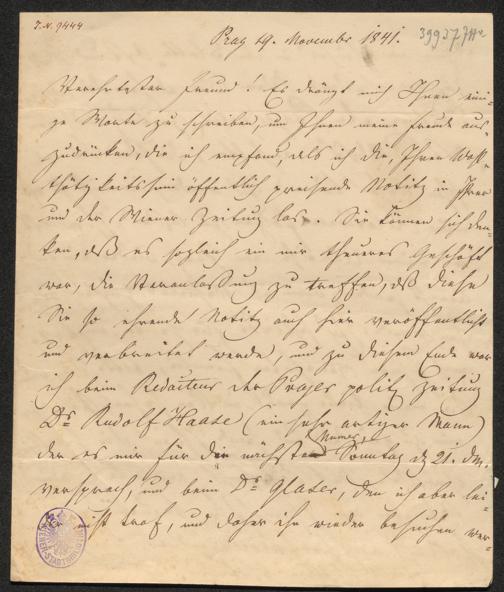 J.N. 9444
Prag 19. November 1841.
Verehrtester Freund! Es drängt mich Ihnen eini-
ge Worte zu schreiben, um Ihnen meine Freude aus-
zudrücken, die ich empfand, als ich die, Ihren Wohl-
thätigkeitssinn öffentlich preisende Notitz in Ihrer
und der Wiener Zeitung las. Sie können sich den-
ken, daß es sogleich ein mir theueres Geschäft
war, die Veranlassung zu treffen, daß diese
Sie so ehrende Notitz auch hier veröffentlicht
und verbreitet werde, und zu diesem Ende war
ich beim Redacteur der Prager polit Zeitung
Dr Rudolf Haase (ein sehr artiger Mann)
der es mir für die nächste Numer, Sonntag d 21. dM.
versprach, und beim Dr Glaser, den ich aber lei-
nicht traf, und daher ihn wieder besuchen wer-